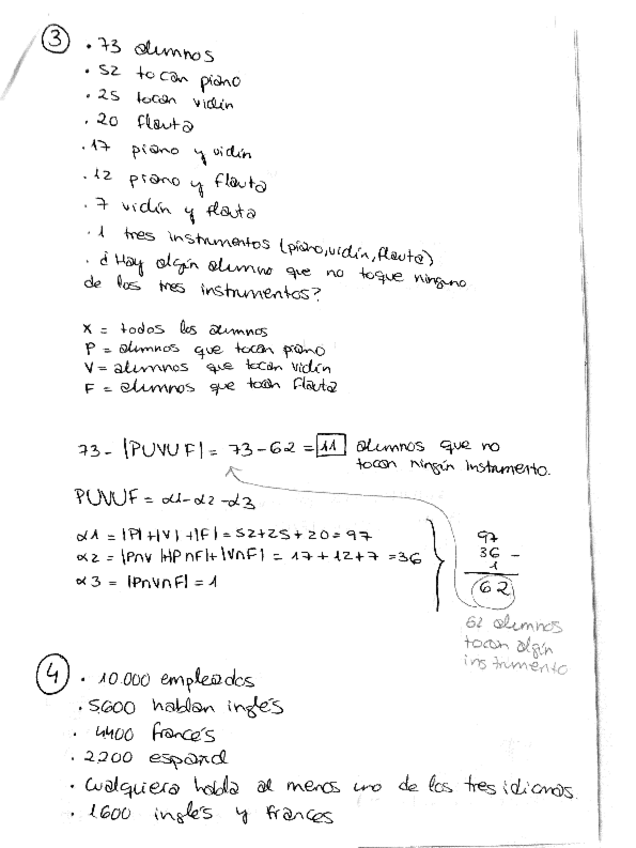 3 · 73 alumnos
· 52 tocan piano
· 25 tocan violín
· 20 flauta
· 17 piano y violín
· 12 piano y flauta
· 7 violín y flauta
· 1 tres instrumentos (piano, violín, flauta)
· ¿Hay algún alumno que no toque ninguno
de los tres instrumentos?
X = todos los alumnos
P = alumnos que tocan piano
V = alumnos que tocan violín
F = alumnos que tocan flauta
73 - |PUVUF| = 73 - 62 = 11 alumnos que no
tocan ningún instrumento.
PUVUF = α1 - α2 - α3
α1 = |P| + |V| + |F| = 52 + 25 + 20 = 97
α2 = |P∩V |+|P∩F| + |V∩F| = 17 + 12 + 7 = 36
α3 = |P∩V∩F| = 1
97
36 -
1
62
62 alumnos
tocan algún
instrumento
4 · 10.000 empleados
· 5.600 hablan inglés
· 4400 francés
· 2.200 español
· Cualquiera habla al menos uno de los tres idiomas.
· 1600 inglés y frances